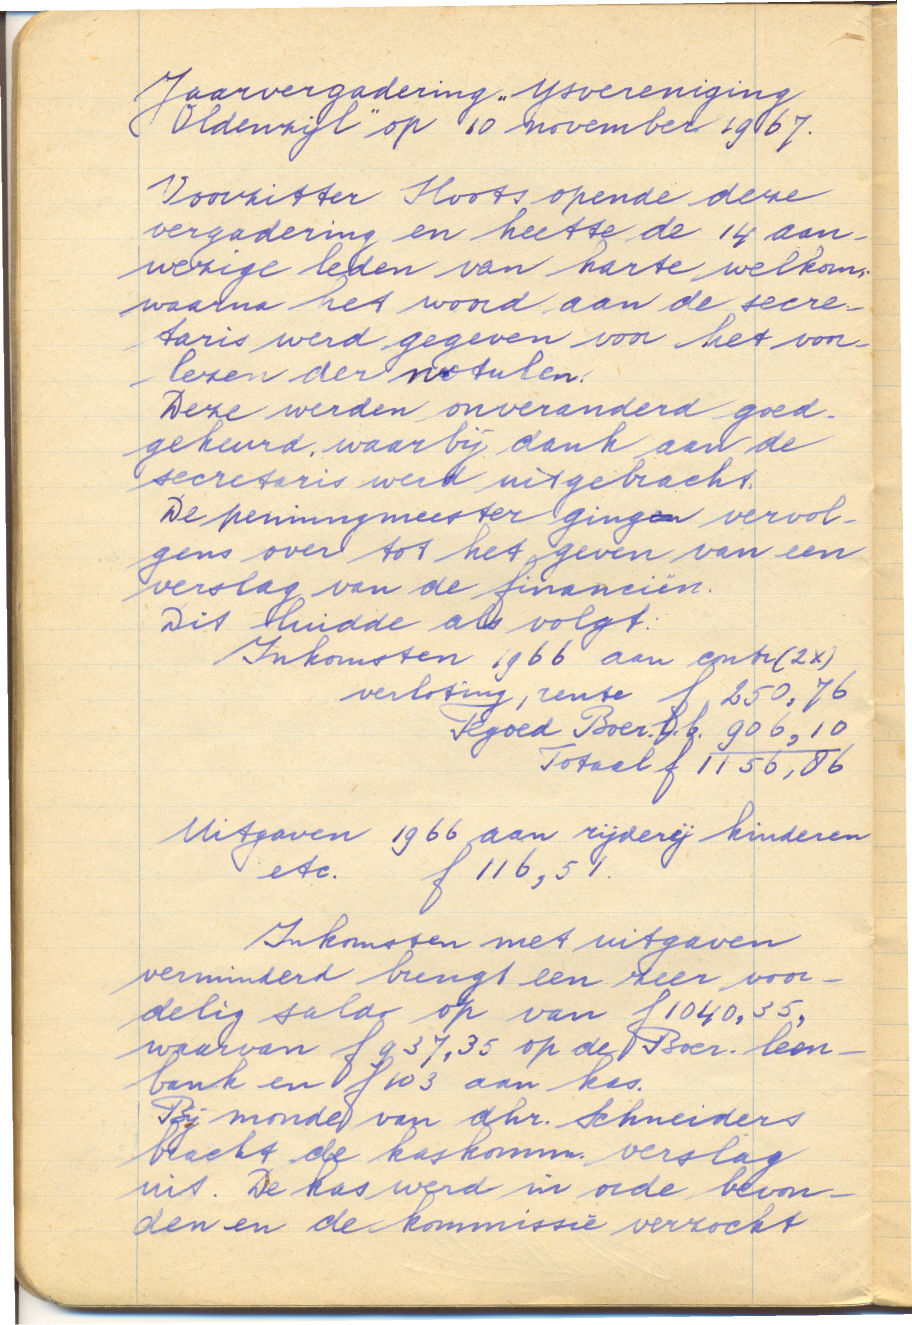 Jaarvergadering „IJsvereniging
Oldenzijl" op 10 november 1967.
Voorzitter Sloots opende deze
vergadering en heette de 14 aan-
wezige leden van harte welkom,
waarna het woord aan de secre-
taris werd gegeven voor het voor-
lezen der notulen.
Deze werden onveranderd goed-
gekeurd, waarbij dank aan de
secretaris werd uitgebracht.
De penningmeester ging vervol-
gens over tot het geven van een
verslag van de financiën.
Dit luidde als volgt:
Inkomsten 1966 aan contr (2x)
verloting, rente f 250,76
Tegoed Boer. l.b. 906,10
Totaal f 1156,86
Uitgaven 1966 aan rijderij kinderen
etc. f 116,51.
Inkomsten met uitgaven
verminderd brengt een zeer voor-
delig saldo op van f 1040,35,
waarvan f 937,35 op de Boer. leen-
bank en f 103 aan kas.
Bij monde van dhr. Schneiders
bracht de kaskomm. verslag
uit. De kas werd in orde bevon-
den en de kommissie verzocht